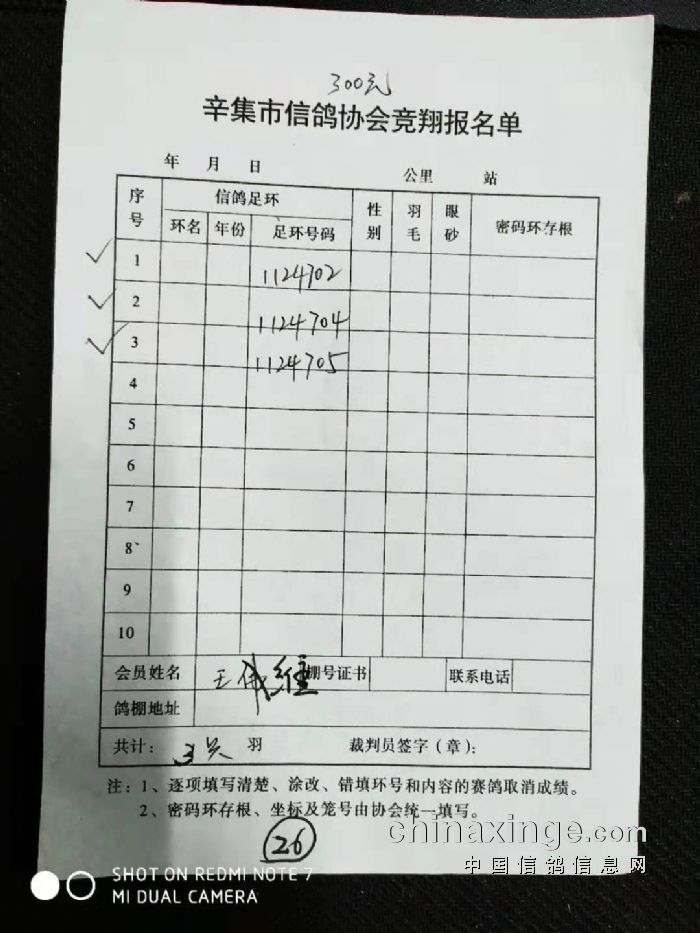 300元
辛集市信鸽协会竞翔报名单
年 月 日 公里 站
序号 信鸽足环 性别 羽毛 眼砂 密码环存根
环名 年份 足环号码
1 1124702
2 1124704
3 1124705
4
5
6
7
8
9
10
会员姓名 王 维 棚号证书 联系电话
鸽棚地址
共计: 3 羽 裁判员签字(章):
注:1、逐项填写清楚、涂改、错填环号和内容的赛鸽取消成绩。
2、密码环存根、坐标及笼号由协会统一填写。
26
chinaxinge.com
中国信鸽信息网
SHOT ON REDMI NOTE 7
MI DUAL CAMERA